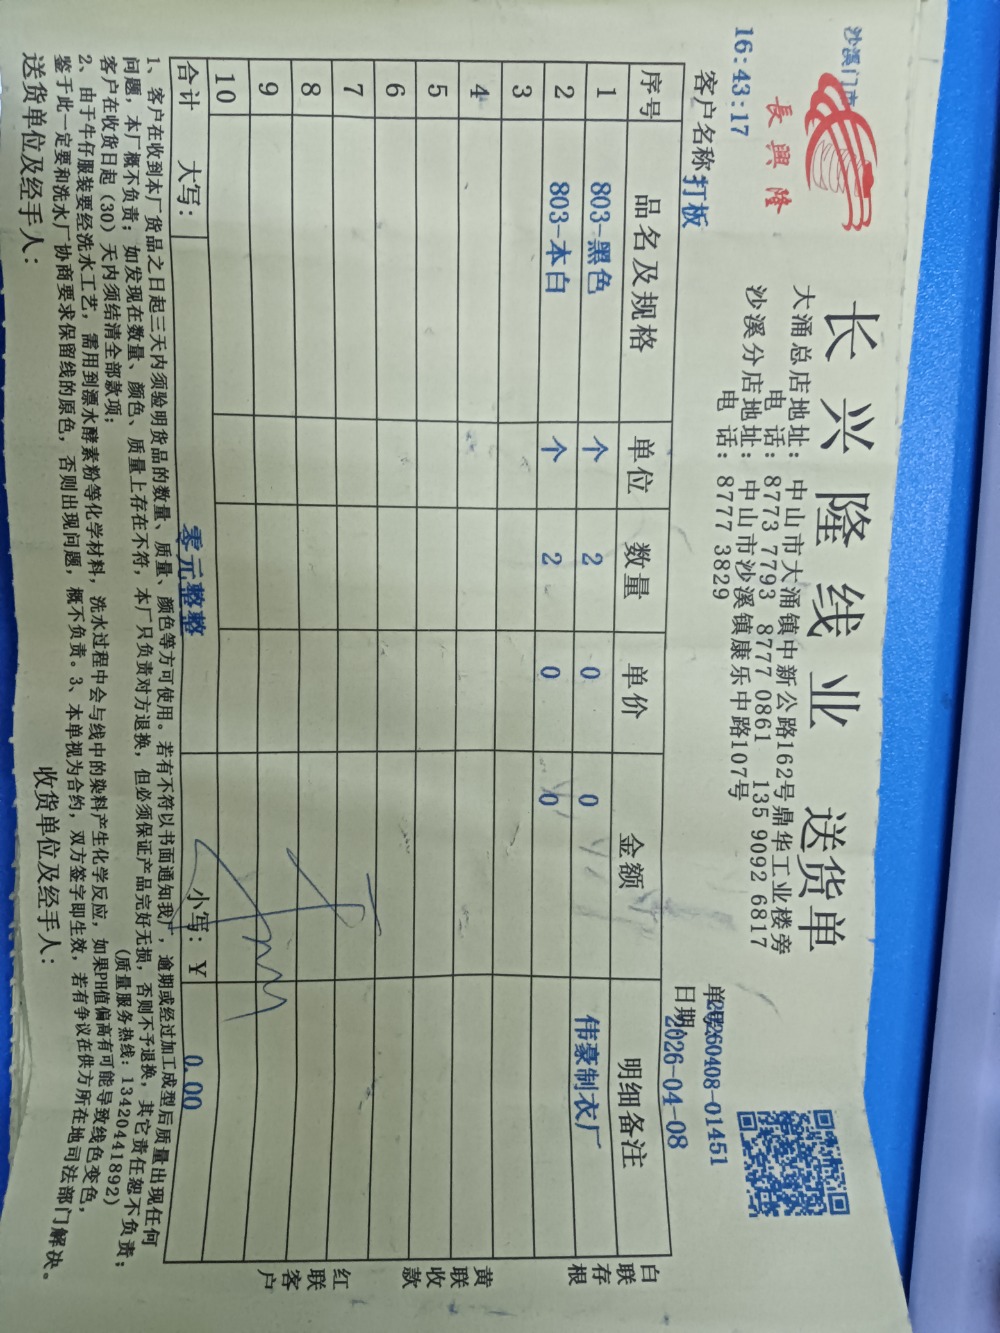 沙溪门市
16:43:17
長興隆
长兴隆线业 送货单
大涌总店地址：中山市大涌镇中新公路162号鼎华工业楼旁
电 话：8773 7793 8777 0861 135 9092 6817
沙溪分店地址：中山市沙溪镇康乐中路107号
电 话：8777 3829
单号 20260408-01451
客户名称 打板
日期 2026-04-08
序号 品名及规格 单位 数量 单价 金额 明细备注
1 803-黑色 个 2 0 0 伟豪制衣厂
2 803-本白 个 2 0 0
3
4
5
6
7
8
9
10
合计 大写： 零元整整 小写：￥ 0.00
白联存根
黄联收款
红联客户
1、客户在收到本厂货品之日起三天内须验明货品的数量、质量、颜色等方可使用。若有不符以书面通知我厂，逾期或经过加工成型后质量出现任何
问题，本厂概不负责；如发现在数量、颜色、质量上存在不符，本厂只负责对方退换，但必须保证产品完好无损，否则不予退换，其它责任恕不负责；
客户在收货日起（30）天内须结清全部款项； （质量服务热线：13420441892）
2、由于牛仔服装要经洗水工艺，需用到漂水酵素粉等化学材料，洗水过程中会与线中的染料产生化学反应，如果PH值偏高有可能导致线色变色，
鉴于此一定要和洗水厂协商要求保留线的原色，否则出现问题，概不负责。3、本单视为合约，双方签字即生效，若有争议在供方所在地司法部门解决。
送货单位及经手人： 收货单位及经手人：